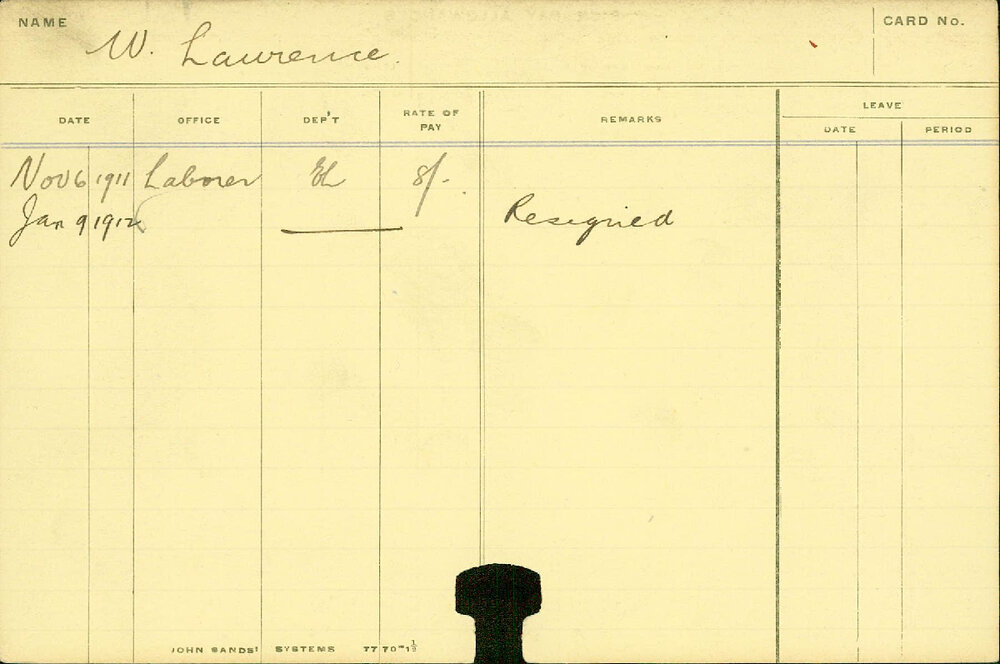 NAME W. Lawrence. CARD No.
DATE OFFICE DEP'T RATE OF PAY REMARKS LEAVE
DATE PERIOD
Nov 6 1911 Laborer EL 8/-.
Jan 9 1912 Resigned
JOHN SANDS' SYSTEMS